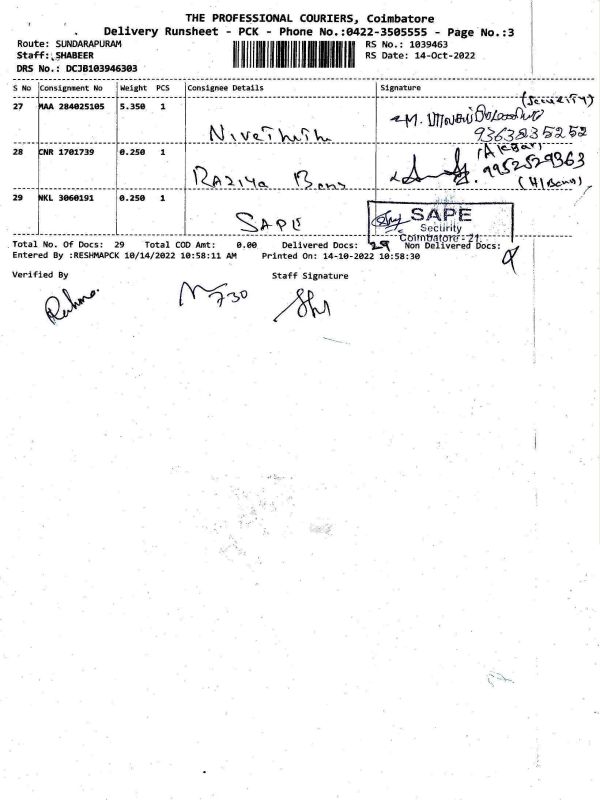 THE PROFESSIONAL COURIERS, Coimbatore
Delivery Runsheet - PCK - Phone No.:0422-3505555 - Page No.:3
Route: SUNDARAPURAM
RS No.: 1039463
Staff: SHABEER
RS Date: 14-Oct-2022
DRS No.: DCJB103946303
S No Consignment No Weight PCS Consignee Details Signature
27 MAA 284025105 5.350 1 Nivethitha M. (Security)
9363835252
28 CNR 1701739 0.250 1 Raziya Banu (Akbar)
9952529363
(H/Banu)
29 NKL 3060191 0.250 1 SAPE
SAPE
Security
Coimbatore - 21.
Total No. Of Docs: 29 Total COD Amt: 0.00 Delivered Docs: 29 Non Delivered Docs:
Entered By :RESHMAPCK 10/14/2022 10:58:11 AM Printed On: 14-10-2022 10:58:30
Verified By Staff Signature
730